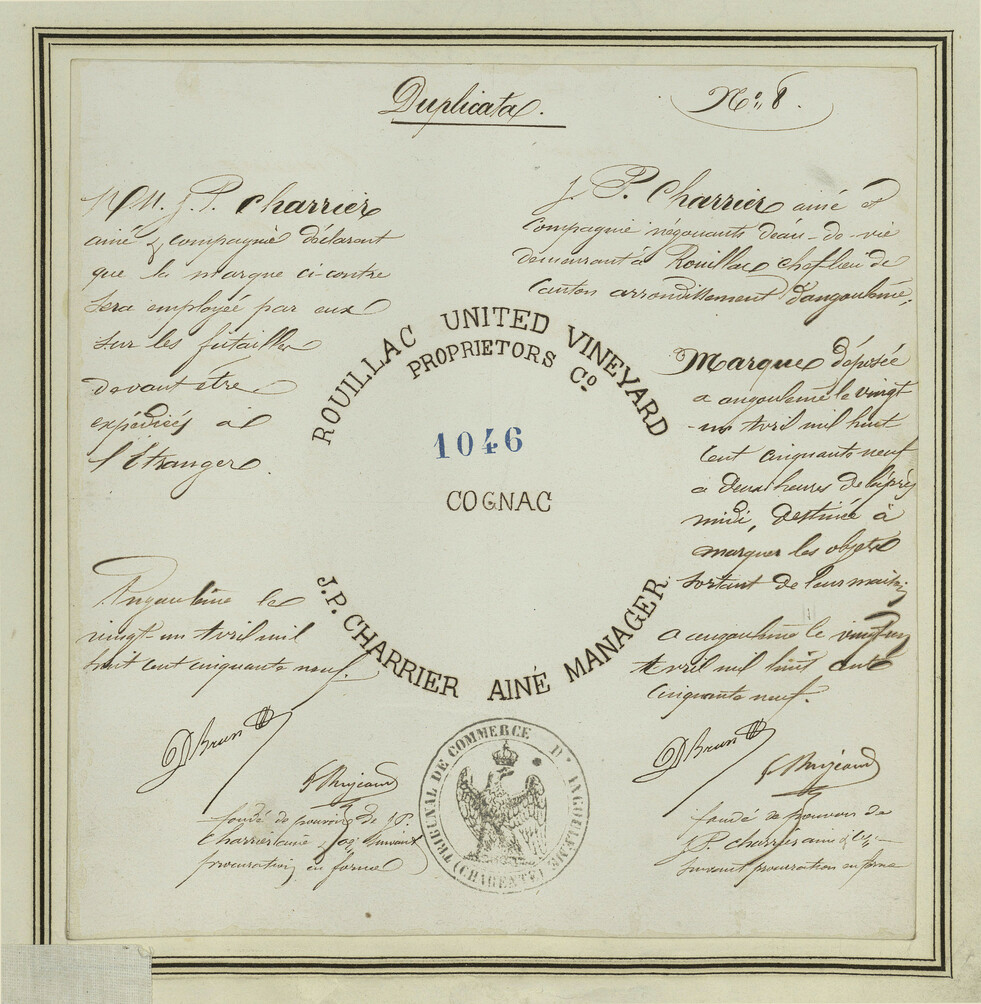 Duplicata.
N° 8.
MM. J. P. Charrier
ainé & compagnie déclarent
que la marque ci-contre
sera employée par eux
sur les futailles
devant être
expédiées à
l'Etranger.
J. P. Charrier ainé et
Compagnie négociants d'eau-de-vie
demeurant à Rouillac chef lieu de
Canton arrondissement d'angoulême,
Marque déposée
a angoulême le vingt
un Avril mil huit
cent cinquante neuf
à deux heures de l'après
midi, destinée à
marquer les objets
sortant de leur maison
ROUILLAC UNITED VINEYARD
PROPRIETORS Cº
1046
COGNAC
J.P. CHARRIER AINÉ MANAGER
Angoulême le
vingt-un Avril mil
huit cent cinquante neuf.
a angoulême le vingt un
Avril mil huit cent
cinquante neuf.
D Brun
D Brun
fondé de pouvoir de J. P.
Charrier ainé & Cie suivant
procuration en forme
fondé de pouvoir de
J. P. charrier ainé & Cie
suivant procuration en forme
TRIBUNAL DE COMMERCE D'ANGOULEME
(CHARENTE)